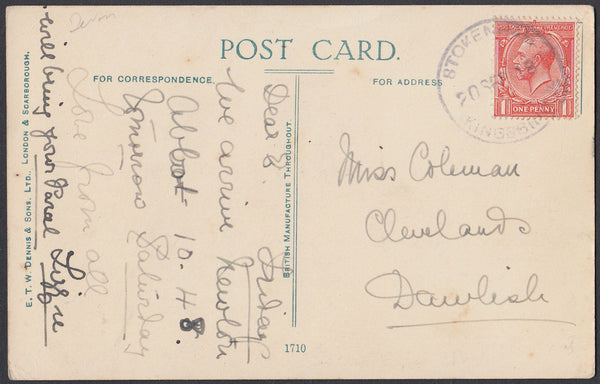 Devon
POST CARD.
FOR CORRESPONDENCE.
FOR ADDRESS
Friday
Dear E.
We arrive Newton
Abbot 10.48.
tomorrow Saturday
Love from all
Lizzie
will bring your Paral
E. T. W. DENNIS & SONS. LTD., LONDON & SCARBOROUGH.
BRITISH MANUFACTURE THROUGHOUT.
1710
STOKENHAM
KINGSBRIDGE
ONE PENNY
1 1
Miss Coleman
Clevelands
Dawlish